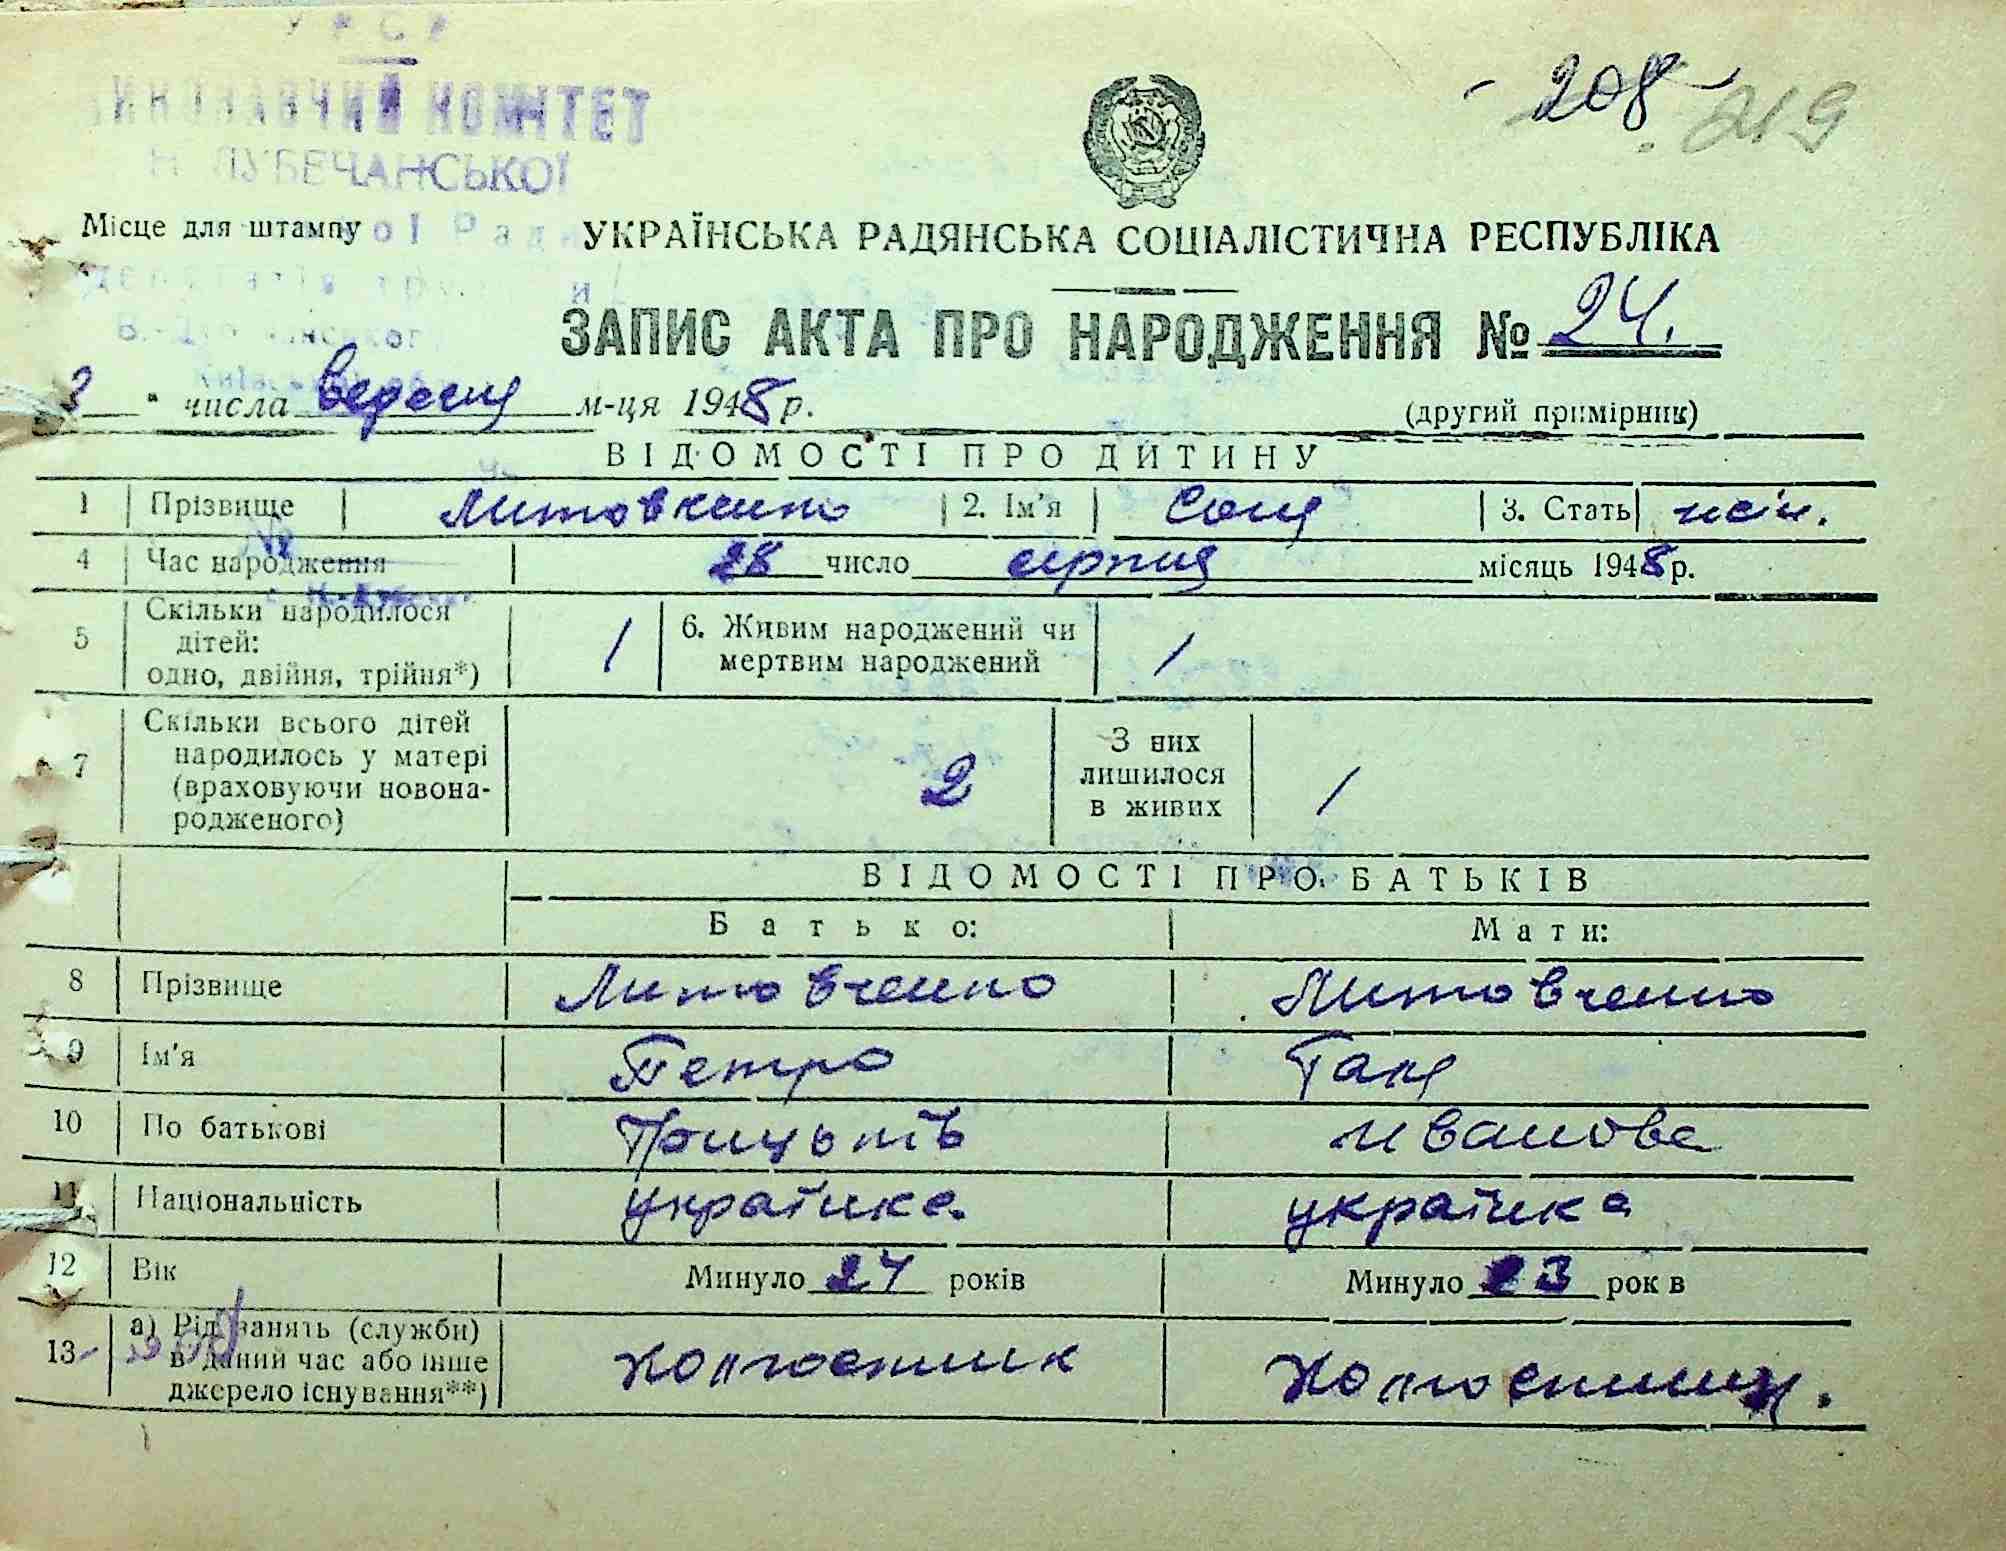 УРСР
ВИКОНАВЧИЙ КОМІТЕТ
Н ЛУБЕЧАНСЬКОЇ
- 208 -
219
Місце для штампу
УКРАЇНСЬКА РАДЯНСЬКА СОЦІАЛІСТИЧНА РЕСПУБЛІКА
ЗАПИС АКТА ПРО НАРОДЖЕННЯ № 24.
3 " числа вересня м-ця 1948 р.
(другий примірник)
ВІДОМОСТІ ПРО ДИТИНУ
1 Прізвище Литовченко 2. Ім'я Соня 3. Стать жін.
4 Час народження 28 число серпня місяць 1948 р.
5 Скільки народилося дітей: одно, двійня, трійня*) 1 6. Живим народжений чи мертвим народжений 1
7 Скільки всього дітей народилось у матері (враховуючи новонародженого) 2 З них лишилося в живих 1
ВІДОМОСТІ ПРО БАТЬКІВ
Батько: Мати:
8 Прізвище Литовченко Литовченко
9 Ім'я Петро Галя
10 По батькові Грицьків Иванова
11 Національність українка. українка
12 Вік Минуло 24 років Минуло 23 рок в
13 а) Рід занять (служби) в даний час або інше джерело існування**) колгоспник колгоспниця.